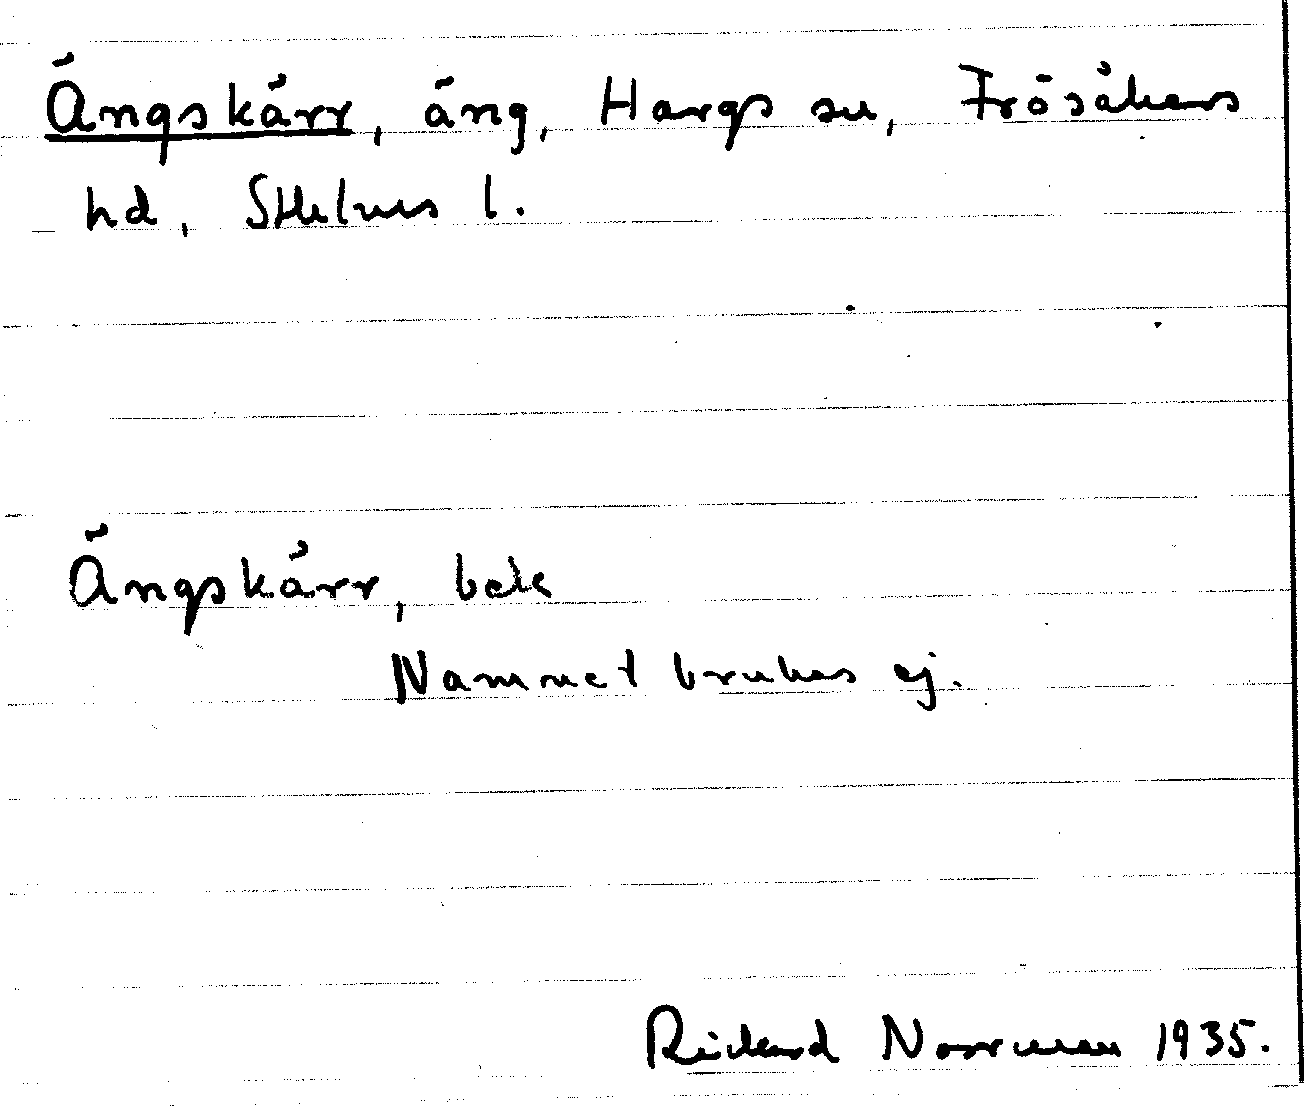 Ängskärr, äng, Hargs sn, Frösåkers
hd, Sthlms l.
Ängskärr, bek
Nammet brukas ej.
Rickard Noorman 1935.